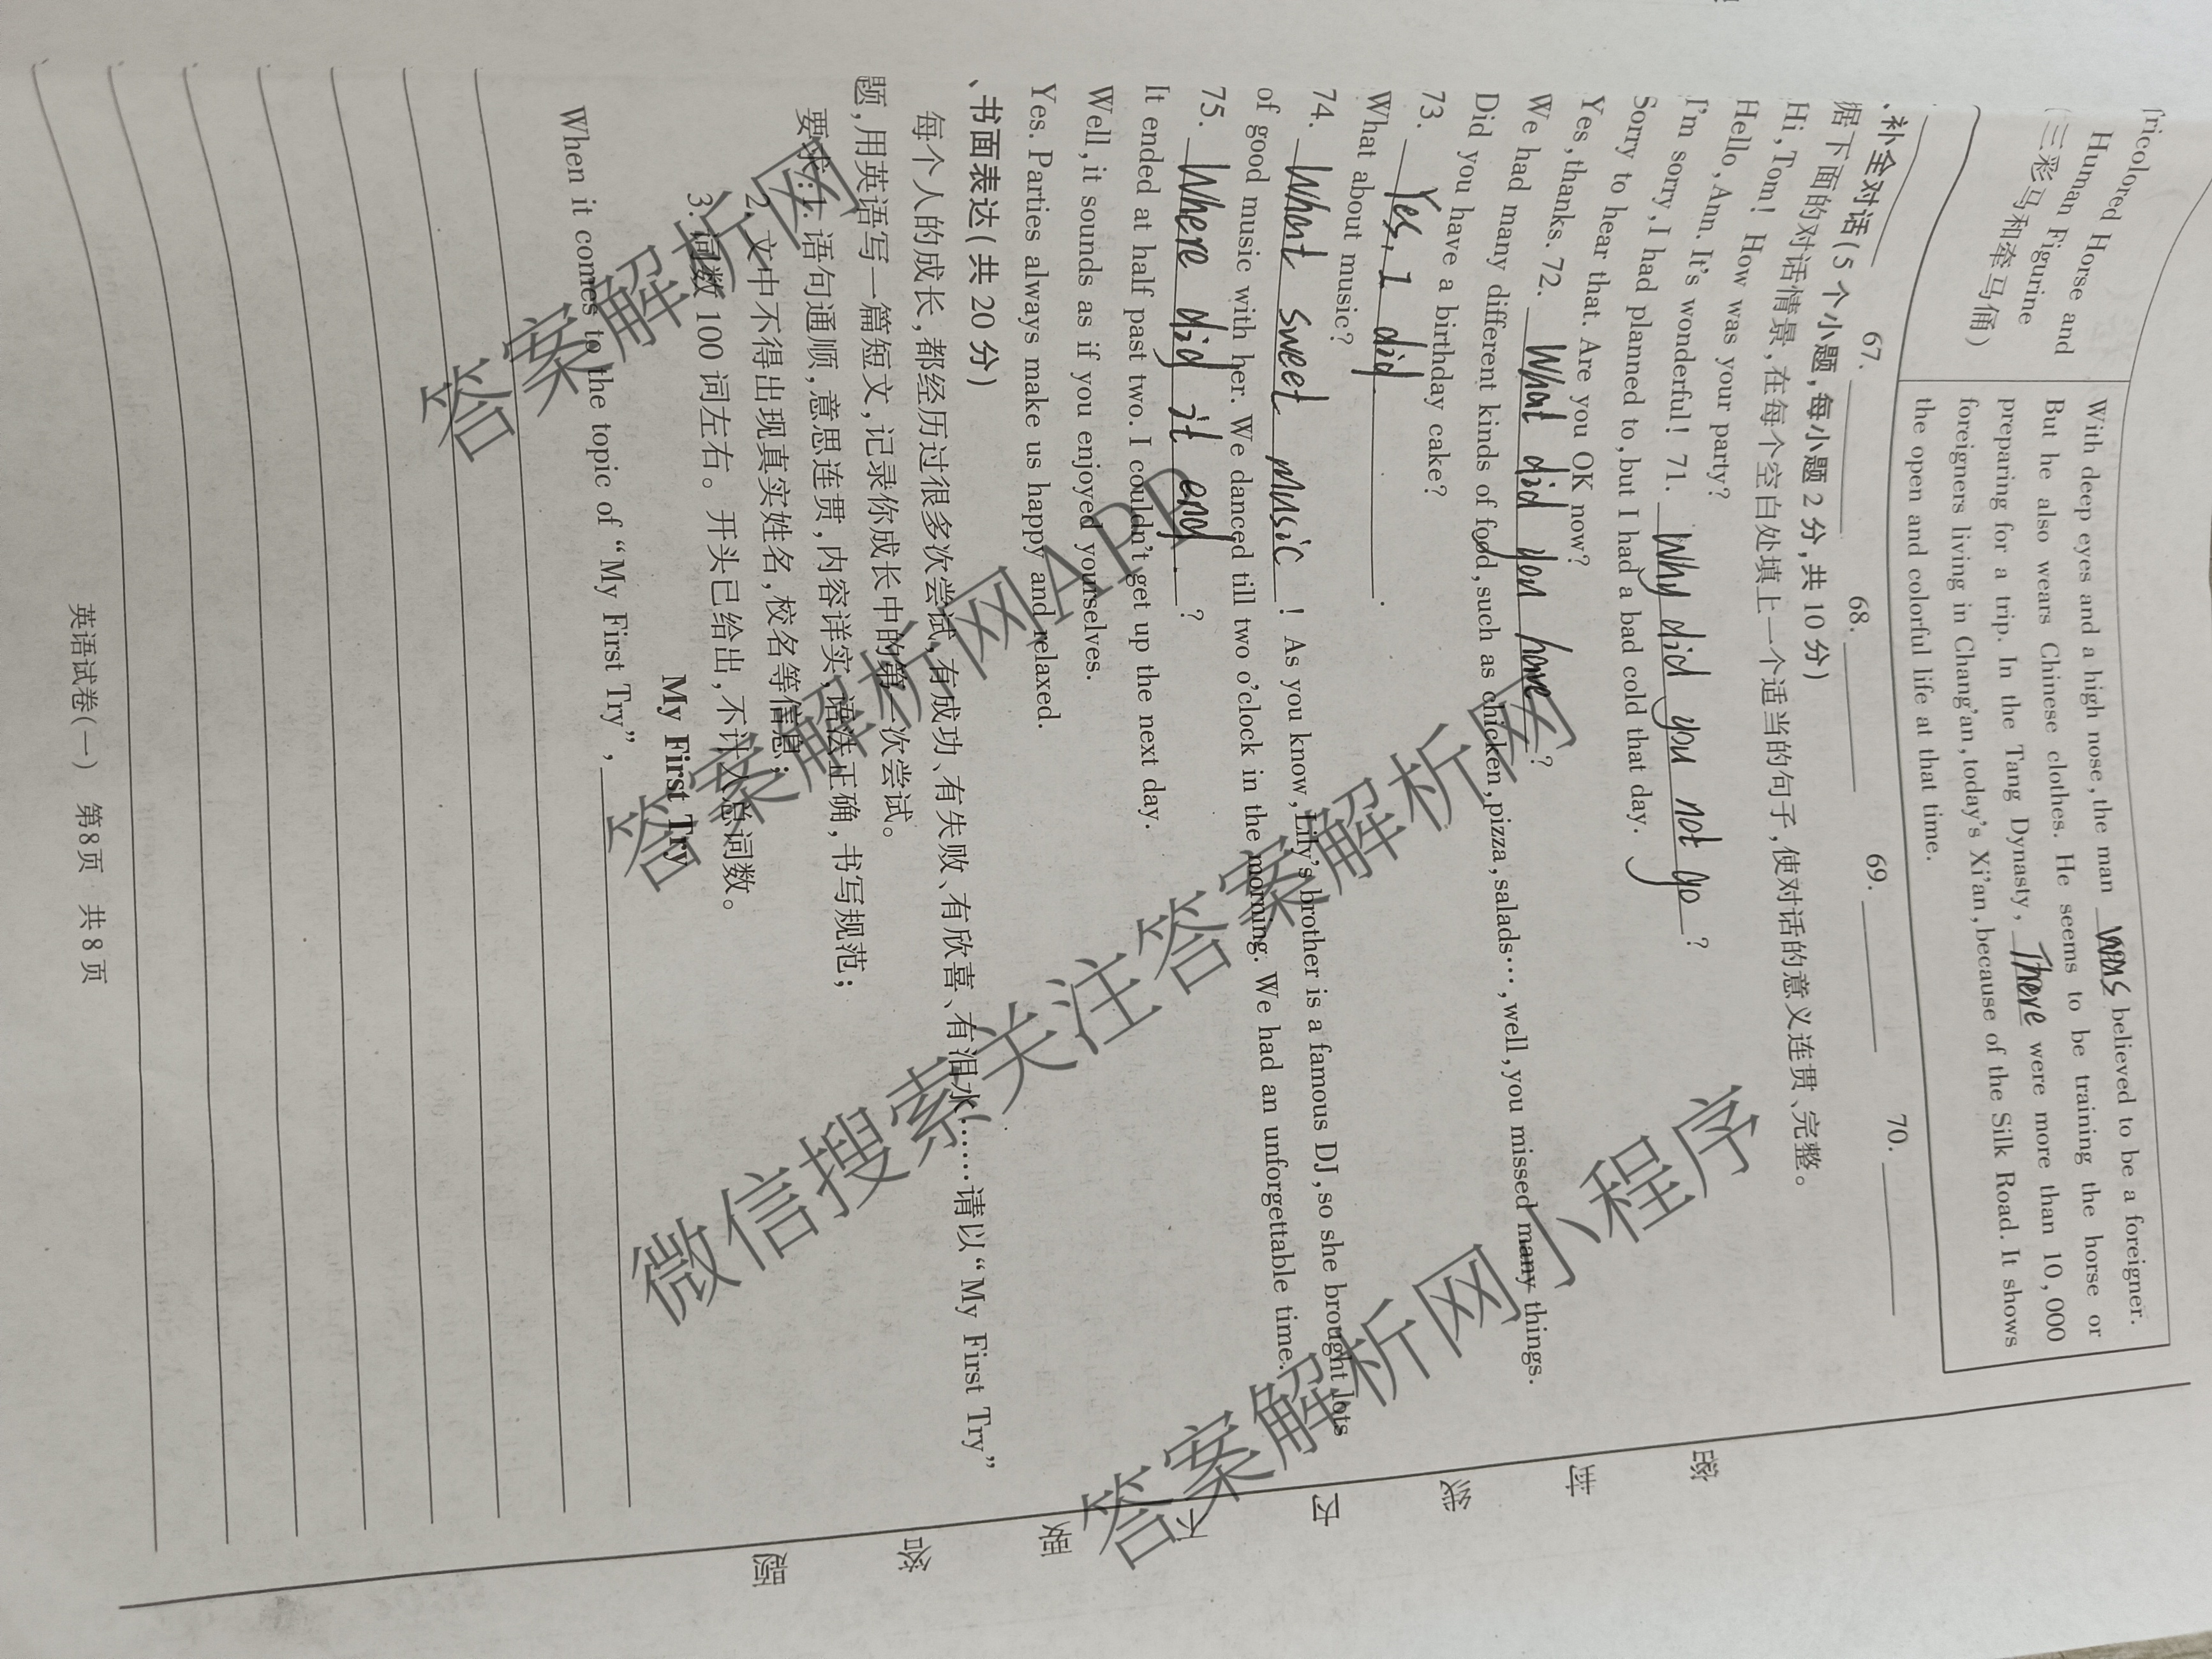 Tricolored
Human Figurine
Horse and
(三彩马和牵马俑)
With deep eyes and a high nose, the man was believed to be a foreigner.
But he also wears Chinese clothes. He seems to be training the horse or
preparing for a trip. In the Tang Dynasty, There were more than 10,000
foreigners living in Chang'an, today's Xi'an, because of the Silk Road. It shows
the open and colorful life at that time.
67. 68. 69. 70.
、补全对话(5个小题,每小题2分,共10分)
据下面的对话情景,在每个空白处填上一个适当的句子,使对话的意义连贯、完整。
Hi, Tom! How was your party?
Hello, Ann. It's wonderful! 71. Why did you not go?
I'm sorry, I had planned to, but I had a bad cold that day.
Sorry to hear that. Are you OK now?
Yes, thanks. 72. What did you have?
We had many different kinds of food, such as chicken, pizza, salads…, well, you missed many things.
Did you have a birthday cake?
73. Yes, I did.
What about music?
74. What sweet music! As you know, Lily's brother is a famous DJ, so she brought lots
of good music with her. We danced till two o'clock in the morning. We had an unforgettable time.
75. Where did it end?
It ended at half past two. I couldn't get up the next day.
Well, it sounds as if you enjoyed yourselves.
Yes. Parties always make us happy and relaxed.
、书面表达(共20分)
每个人的成长,都经历过很多次尝试,有成功、有失败、有欣喜、有泪水……请以“My First Try”
题,用英语写一篇短文,记录你成长中的第一次尝试。
要求:1. 语句通顺,意思连贯,内容详实,语法正确,书写规范;
2. 文中不得出现真实姓名,校名等信息;
3. 词数100词左右。开头已给出,不计入总词数。
My First Try
When it comes to the topic of “My First Try”,
英语试卷(一) 第8页 共8页
密
封
线
内
不
要
答
题
答案解析网
答案解析网APP
微信搜索关注答案解析网
答案解析网小程序